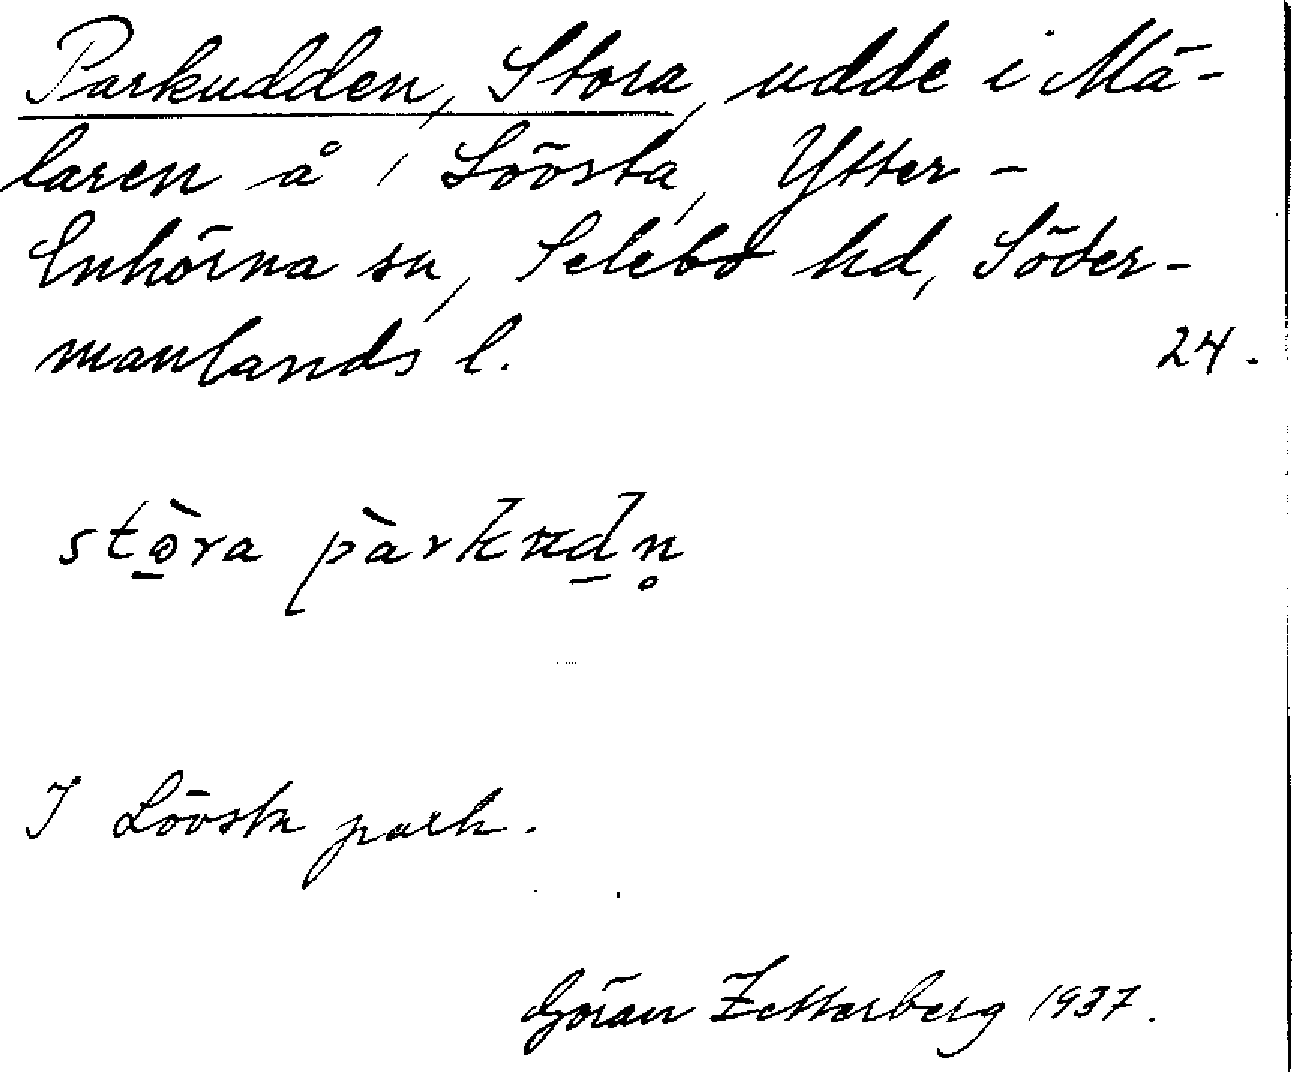 Parkudden, Stora, udde i Mä-
laren å ' Lövsta, Ytter-
Enhörna sn, Selebo hd, Söder-
manlands l. 24.
stò̱ra pàrkuḏn̥
I Lövsta park.
Göran Zetterberg 1937.